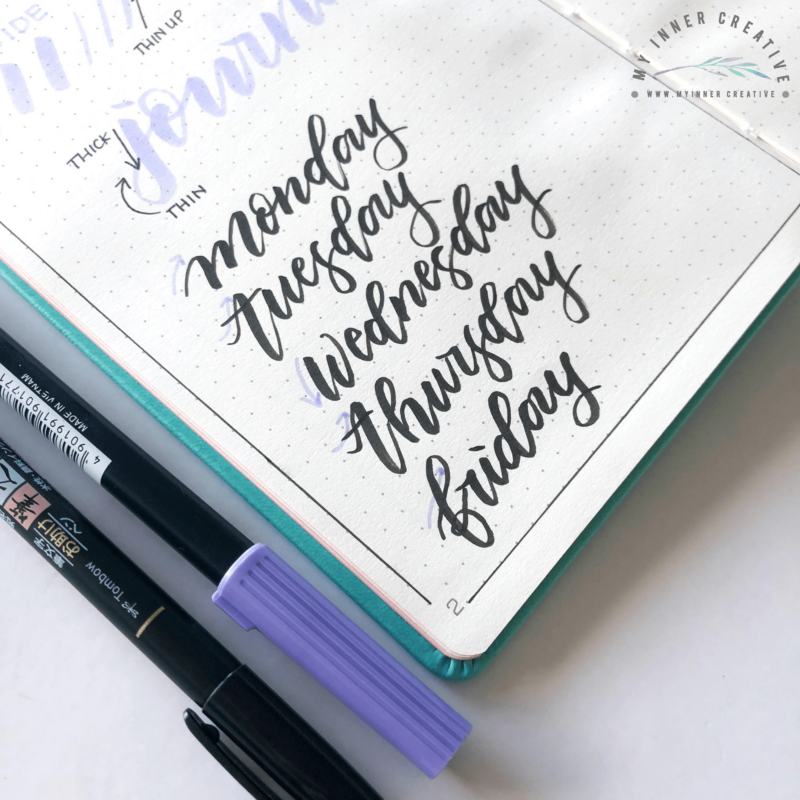 IDE
THIN UP
journ
THICK
THIN
monday
tuesday
wednesday
thursday
friday
2
MY INNER CREATIVE
WWW.MYINNER CREATIVE
MADE IN VIETNAM
4 901991 901771
筆文字
お助け
ペン
Tombow